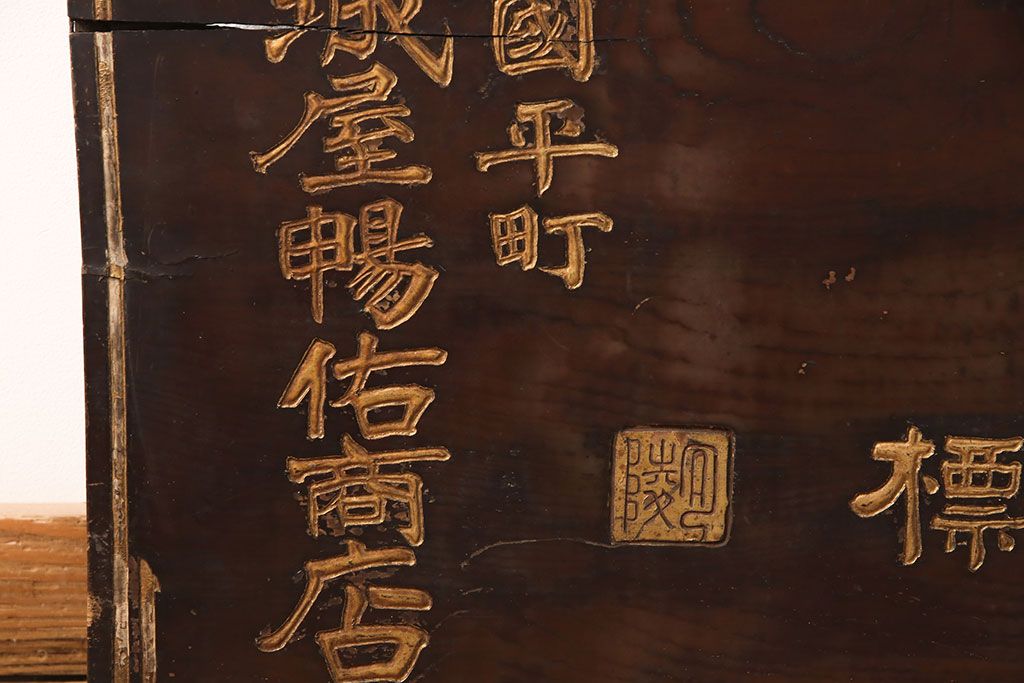 標
國平町
屋暢佑商店